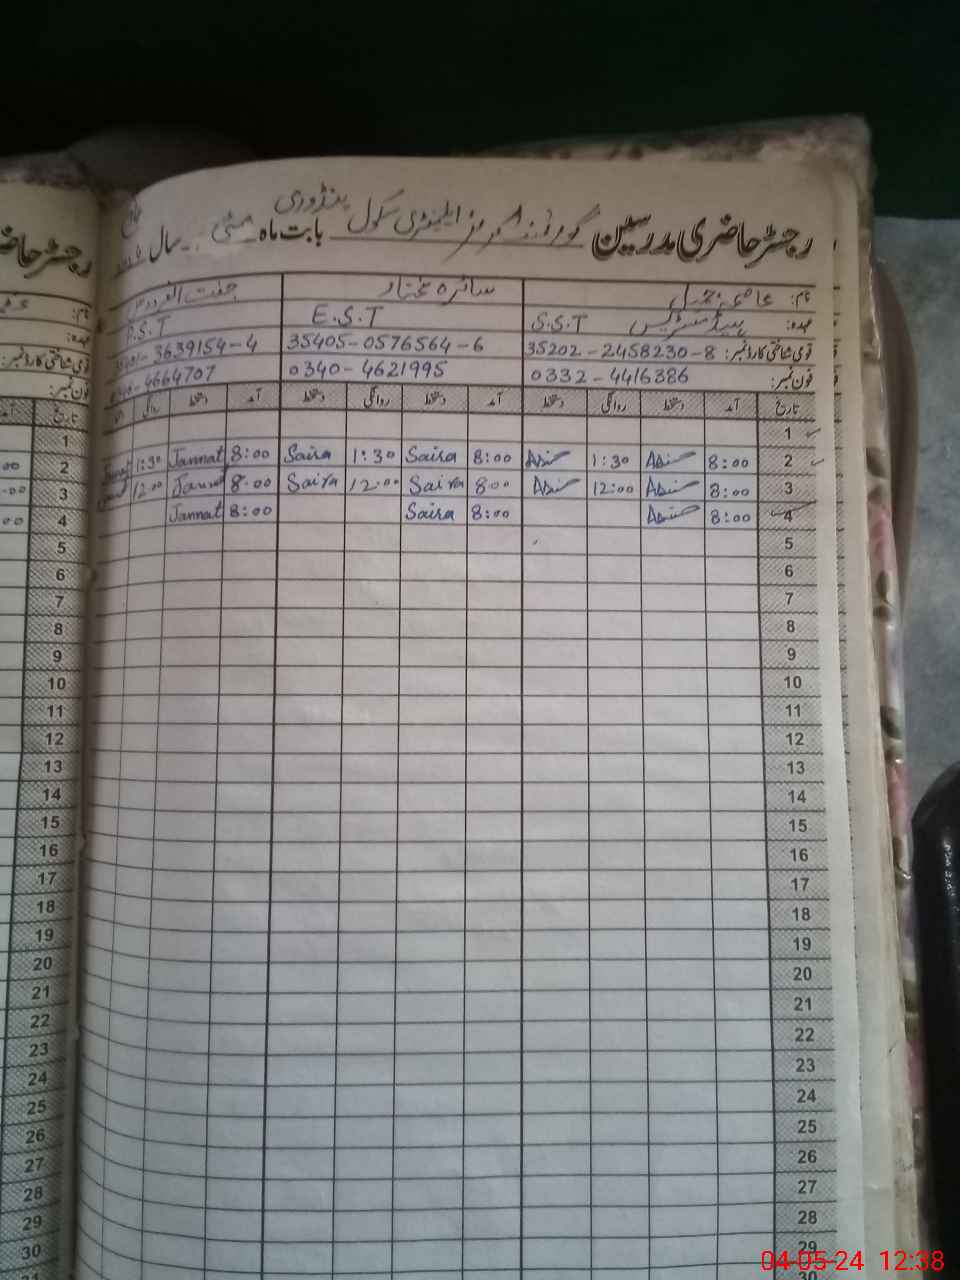 رجسٹر حاضری مدرسین گورنمنٹ گرلز ایلیمنٹری سکول پنڈوری بابت ماہ مئی سال
نام: سائرہ مختار جنت الفردوس
عہدہ: ہیڈ مسٹریس S.S.T E.S.T P.S.T
قومی شناختی کارڈ نمبر: 35202-2458230-8 35405-0576564-6 3639154-4
فون نمبر: 0332-4416386 0340-4621995 4664707
تاریخ آمد دستخط روانگی دستخط آمد دستخط روانگی دستخط آمد دستخط روانگی
1
2 8:00 1:30 8:00 Saira 1:30 Saira 8:00 Jannat 1:30
3 8:00 12:00 8:00 Saira 12:00 Saira 8:00 12:00
4 8:00 8:00 Saira 8:00 Jannat
5
6
7
8
9
10
11
12
13
14
15
16
17
18
19
20
21
22
23
24
25
26
27
28
29
30
رجسٹر حاضری
نام:
عہدہ:
قومی شناختی کارڈ نمبر:
فون نمبر:
تاریخ
1
2
3
4
5
6
7
8
9
10
11
12
13
14
15
16
17
18
19
20
21
22
23
24
25
26
27
28
29
30
04-05-24 12:38